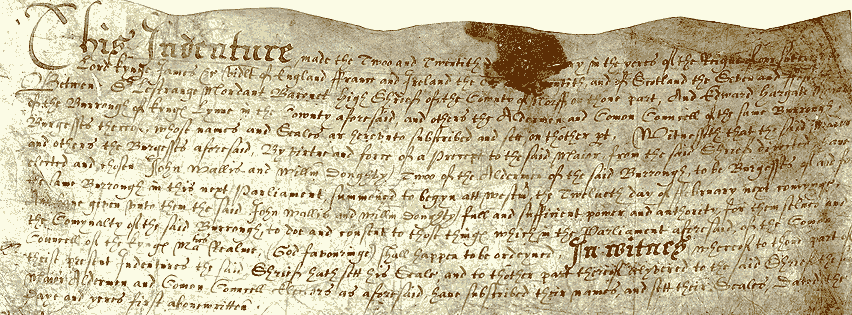 This Indenture made the Twoo and Twentith d ry in the yeres of the Reigne of our Sov
Lord Kynge James &c. videlt of England Fraunce and Ireland the ntith and of Scotland the
Betwen Lestrange Mordant Baronet high Shrief of the County of Norff on thone part, And Edward Hargate
of the Burrough of Kynge Lynne in the County aforesaid and others the Aldermen and Comon Councell of the same Burrough
Burgesses thereof, whose names and Seales ar hereunto subscribed and sett on thother pt, Witnesseth that the said Maior
and others the Burgesses aforesaid, By virtue and force of a Precept to the said Maior, from the said Shrief directed, have
elected and chosen John Wallis and Willm Doughty Two of the Aldermen of the said Burrough, to be Burgesses of and for
the same Burrough in this next Parliament, summoned to begyn att Westm the Twelueth day of February next comynge,
And have given unto them the said John Wallis and Willm Doughty full and sufficient power and authority for them selves and
the Comynalty of the said Burrough, to doe and consent to those things which in the Parliament aforesaid, of the Comon
Councell of the Kynge Ma Realme, (God favoringe) shall happen to be ordeyned In witnes whereof to thone part of
theis present Indentures the said Shrief hath sett his Seale and to thother part thereof delyvered to the said Shrief the
Maior Aldermen and Comon Councell Electors as aforesaid have subscribed their names and sett their Seales, Dated the
Daye and yeres first abovewritten.